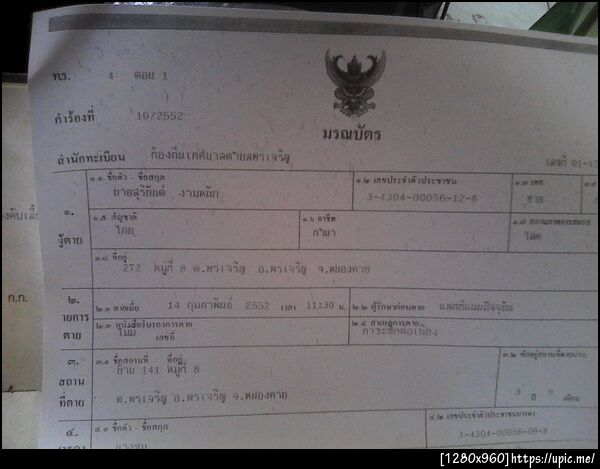 ท.ร. 4 ตอน 1
คำร้องที่ 10/2552
มรณบัตร
สำนักทะเบียน ท้องถิ่นเทศบาลตำบลพรเจริญ เลขที่ 01-43
๑. ผู้ตาย
๑.๑. ชื่อตัว - ชื่อสกุล ๑.๒ เลขประจำตัวประชาชน ๑.๓ เพศ
นายสุริยันต์ งามหนัก 3-4304-00056-12-8 ชาย
๑.๕. สัญชาติ ๑.๖ อาชีพ ๑.๗ สถานภาพการสมรส
ไทย ทำนา โสด
๑.๘ ที่อยู่
272 หมู่ที่ 8 ต.พรเจริญ อ.พรเจริญ จ.หนองคาย
๒. รายการตาย
๒.๑ ตายเมื่อ 14 กุมภาพันธ์ 2552 เวลา 11:30 น. ๒.๒ ผู้รักษาก่อนตาย แพทย์แผนปัจจุบัน
๒.๓ หนังสือรับรองการตาย ๒.๔ สาเหตุการตาย
ไม่มี เลขที่
๓. สถานที่ตาย
๓.๑ ชื่อสถานที่ ที่อยู่
บ้าน 141 หมู่ที่ 8
3 ปี เดือน
ต.พรเจริญ อ.พรเจริญ จ.หนองคาย
๔.
๔.๑ ชื่อตัว - ชื่อสกุล ๔.๒ เลขประจำตัวประชาชน
3-4304-00056-09-8
ก.ก.
[1280x960]https://upic.me/